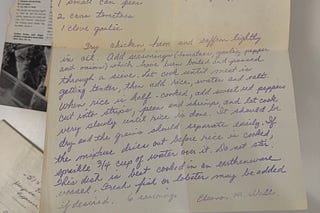 1 small can peas
2 cans tomatoes
1 clove garlic
Fry chicken, ham and saffron lightly
in oil. Add seasonings (tomatoes, garlic, pepper
and onion) which have been boiled and pressed
through a sieve. Let cook until meat is
getting tender, then add rice, water and salt.
When rice is half-cooked, add sweet red peppers
cut into strips, peas and shrimp, and let cook
very slowly until rice is done. It should be
dry and the grains should separate easily. If
the mixture dries out before rice is cooked,
sprinkle 3/4 cup of water over it. Do not stir.
This dish is best cooked in an earthenware
vessel. Fresh fish or lobster may be added
if desired. 6 servings
Eleanor M.